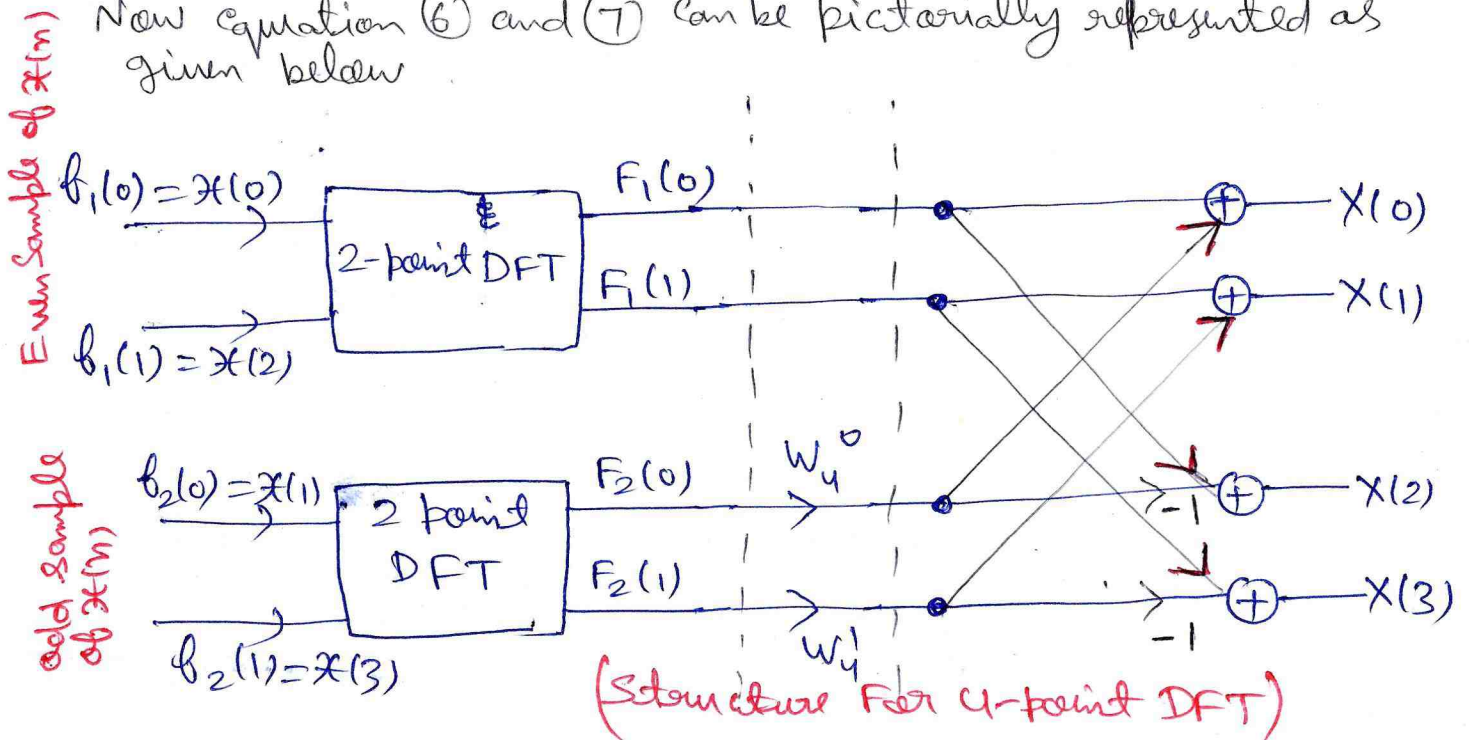 Now equation ⑥ and ⑦ can be pictorially represented as
given below
Even Sample of x(n)
f₁(0) = x(0)
f₁(1) = x(2)
2-point DFT
F₁(0)
F₁(1)
X(0)
X(1)
odd sample
of x(n)
f₂(0) = x(1)
f₂(1) = x(3)
2 point
DFT
F₂(0)
F₂(1)
W₄⁰
W₄¹
-1
-1
X(2)
X(3)
(Structure For 4-point DFT)